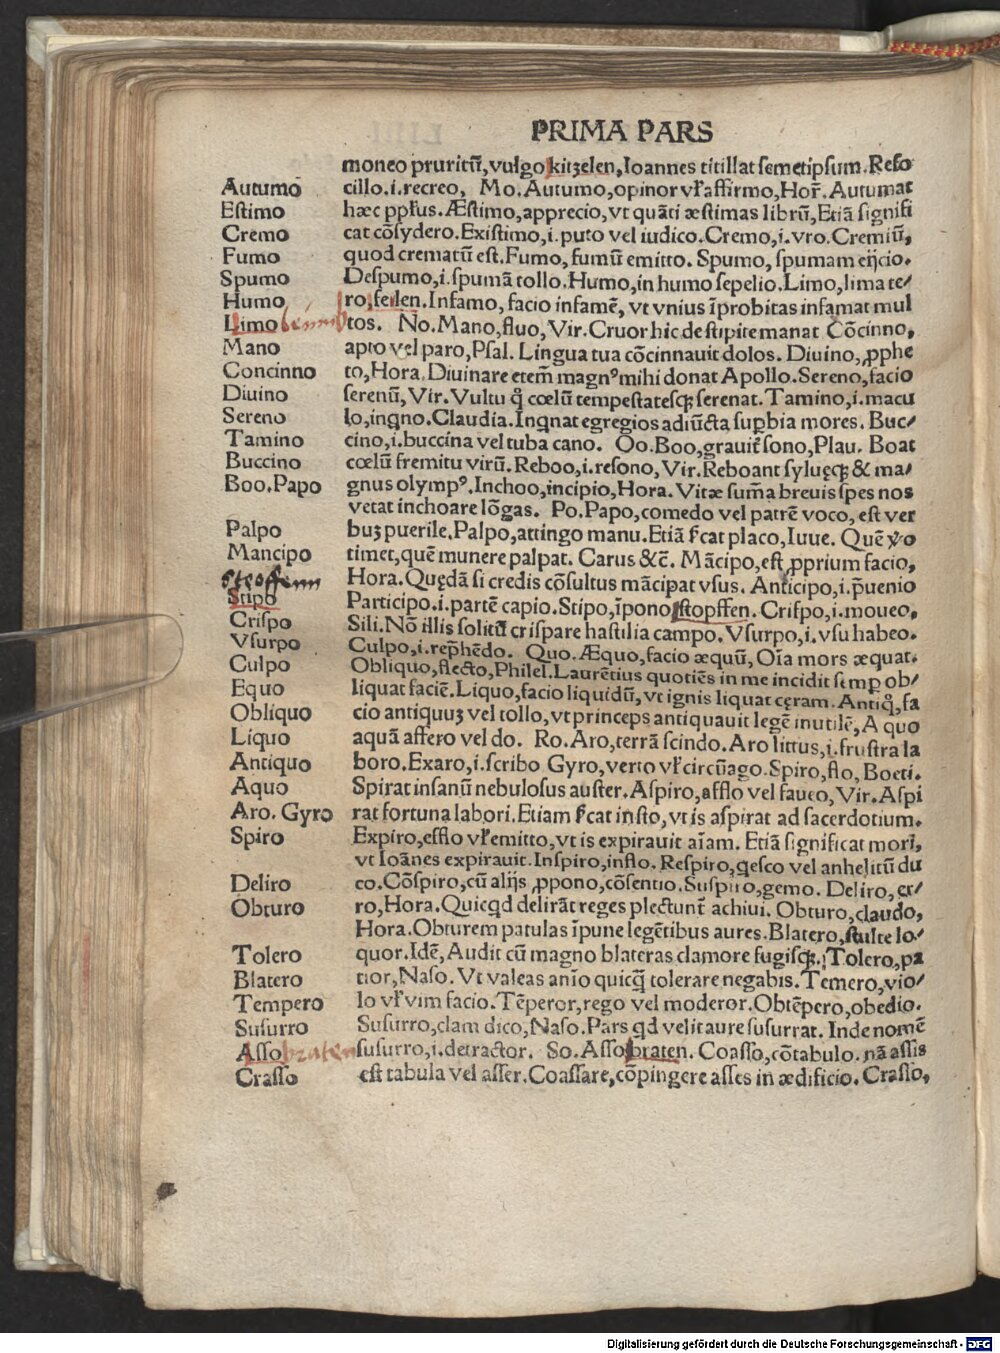 PRIMA PARS
moneo pruritũ, vulgo kitzelen, Ioannes titillat semetipsum. Refo
Autumo cillo.i.recreo, Mo. Autumo, opinor vł affirmo, Hor̃. Autumat
Estimo hæc ppłus. Æstimo, apprecio, vt quãti æstimas librũ, Etiã signifi
Cremo cat cõsydero. Existimo, i. puto vel iudico. Cremo, i. vro. Cremiũ,
Fumo quod crematũ est. Fumo, fumũ emitto. Spumo, spumam eijcio.
Spumo Despumo, i. spumã tollo. Humo, in humo sepelio. Limo, lima te/
Humo ro, feilen. Infamo, facio infamẽ, vt vnius ĩprobitas infamat mul
Limo tos. No. Mano, fluo, Vir. Cruor hic de stipite manat Cõcinno,
Mano apto vel paro, Psal. Lingua tua cõcinnauit dolos. Diuino, ꝓphe
Concinno to, Hora. Diuinare etem̃ magnꝰ mihi donat Apollo. Sereno, facio
Diuino serenũ, Vir. Vultu q̃ cœlũ tempestatesqꝫ serenat. Tamino, i. macu
Sereno lo, inqno. Claudia. Inqnat egregios adiũcta supbia mores. Buc/
Tamino cino, i. buccina vel tuba cano. Oo. Boo, grauit̃ sono, Plau. Boat
Buccino cœlũ fremitu virũ. Reboo, i. resono, Vir. Reboant syluęqꝫ & ma/
Boo. Papo gnus olympꝰ. Inchoo, incipio, Hora. Vitæ sum̃a breuis spes nos
vetat inchoare lõgas. Po. Papo, comedo vel patrẽ voco, est ver
Palpo buꝫ puerile. Palpo, attingo manu. Etiã ſ̃cat placo, Iuue. Quẽ ꝟo
Mancipo timet, quẽ munere palpat. Carus &c̃. Mãcipo, est ꝓprium facio,
Hora. Quędã si credis cõsultus mãcipat vsus. Anticipo, i. p̃uenio
Stipo Participo. i. partẽ capio. Stipo, ĩpono stopffen. Crispo, i. moueo,
Crispo Sili. Nõ illis solitũ crispare hastilia campo. Vsurpo, i. vsu habeo.
Vsurpo Culpo, i. rep̃hẽdo. Quo. Æquo, facio æquũ, Oĩa mors æquat.
Culpo Obliquo, flecto, Philel. Laurẽtius quotiẽs in me incidit semp ob/
Equo liquat faciẽ. Liquo, facio liquidũ, vt ignis liquat cęram. Antiq̃, fa
Obliquo cio antiquuꝫ vel tollo, vt princeps antiquauit legẽ inutilẽ, A quo
Liquo aquã affero vel do. Ro. Aro, terrã scindo. Aro littus, i. frustra la
Antiquo boro. Exaro, i. scribo Gyro, verto vł circũago. Spiro, flo, Boeti.
Aquo Spirat insanũ nebulosus auster. Aspiro, afflo vel faueo, Vir. Aspi
Aro. Gyro rat fortuna labori. Etiam ſ̃cat insto, vt is aspirat ad sacerdotium.
Spiro Expiro, efflo vł emitto, vt is expirauit aĩam. Etiã significat mori,
vt Ioãnes expirauit. Inspiro, inflo. Respiro, qesco vel anhelitũ du
Deliro co. Cõspiro, cũ alijs ꝓpono, cõsentio. Suspiro, gemo. Deliro, er/
Obturo ro, Hora. Quicqd delirãt reges plectunt̃ achiui. Obturo, claudo,
Hora. Obturem patulas ĩpune legẽtibus aures. Blatero, stulte lo/
Tolero quor. Idẽ, Audit cũ magno blateras clamore fugisqꝫ. Tolero, pa
Blatero tior, Naso. Vt valeas anĩo quicq̃ tolerare negabis. Temero, vio/
Tempero lo vł vim facio. Tẽperor, rego vel moderor. Obtẽpero, obedio.
Susurro Susurro, clam dico, Naso. Pars qd velit aure susurrat. Inde nomẽ
Asso braten susurro, i. detractor. So. Asso braten. Coasso, cõtabulo. nã assis
Crasso est tabula vel asser. Coassare, cõpingere asses in ædificio. Crasso,
Digitalisierung gefördert durch die Deutsche Forschungsgemeinschaft - DFG